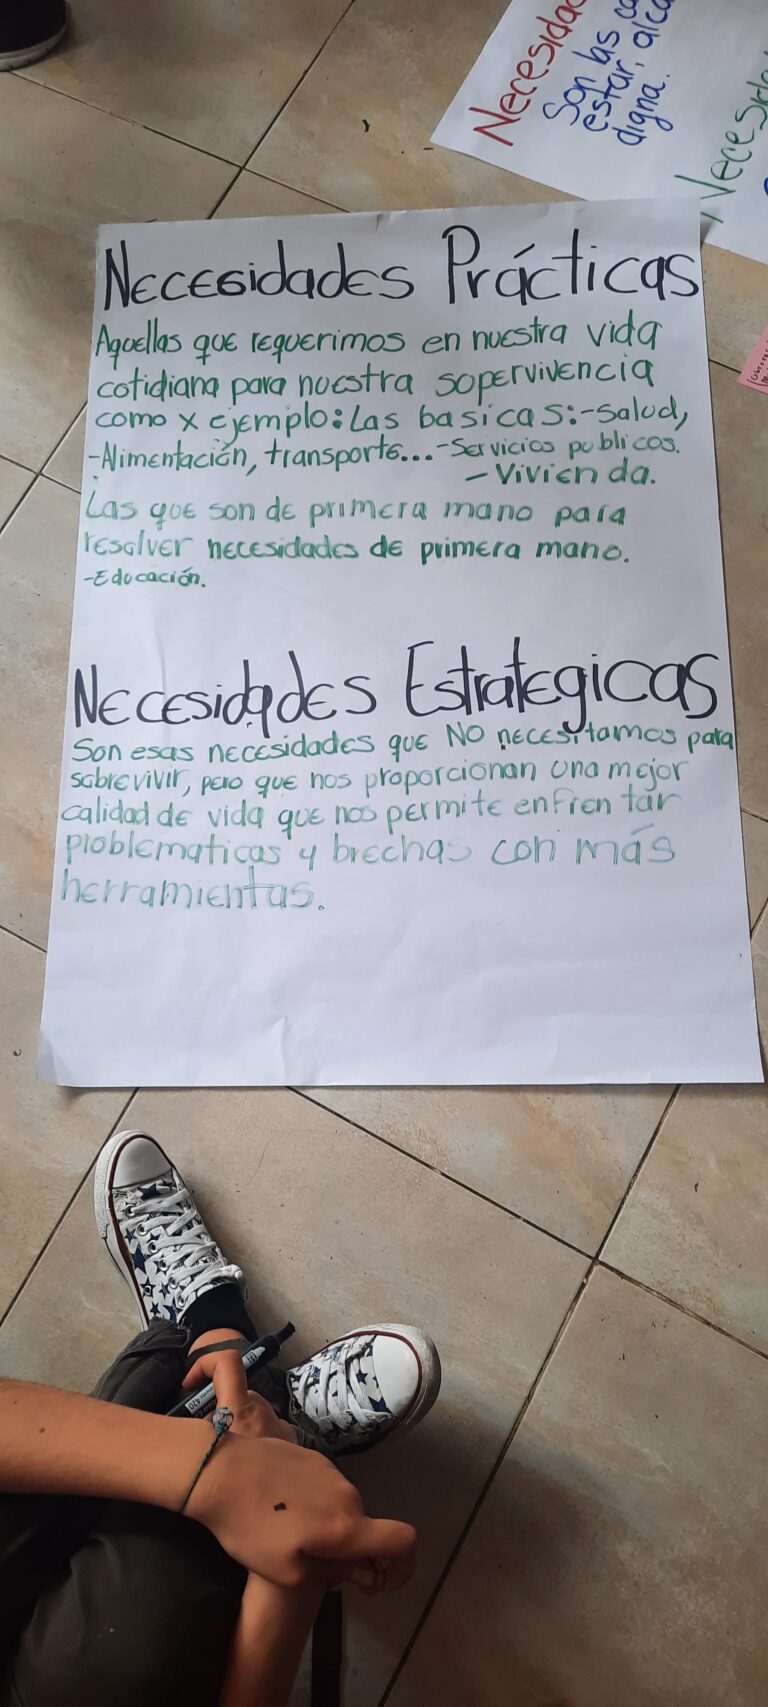 Necesidades Prácticas
Aquellas que requerimos en nuestra vida
cotidiana para nuestra sopervivencia
como x ejemplo: Las basicas:-Salud,
-Alimentación, transporte...-Servicios publicos.
-Vivienda.
Las que son de primera mano para
resolver necesidades de primera mano.
-Educación.
Necesidades Estrategicas
Son esas necesidades que NO necesitamos para
sobrevivir, pero que nos proporcionan una mejor
calidad de vida que nos permite enfrentar
problematicas y brechas con más
herramientas.
Necesidad
Son las
estar, alca
digna.
Necesida